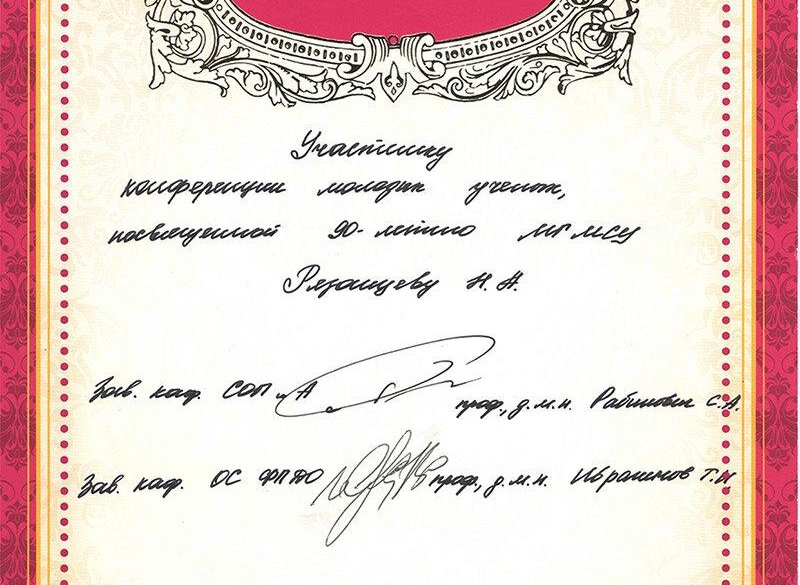 Участнику
конференции молодых ученых,
посвященной 90-летию МГМСУ
Рязанцеву Н. А.
Зав. каф. СОП и А проф., д.м.н. Рабинович С.А.
Зав. каф. ОС ФПДО проф., д.м.н. Ибрагимов Т.И